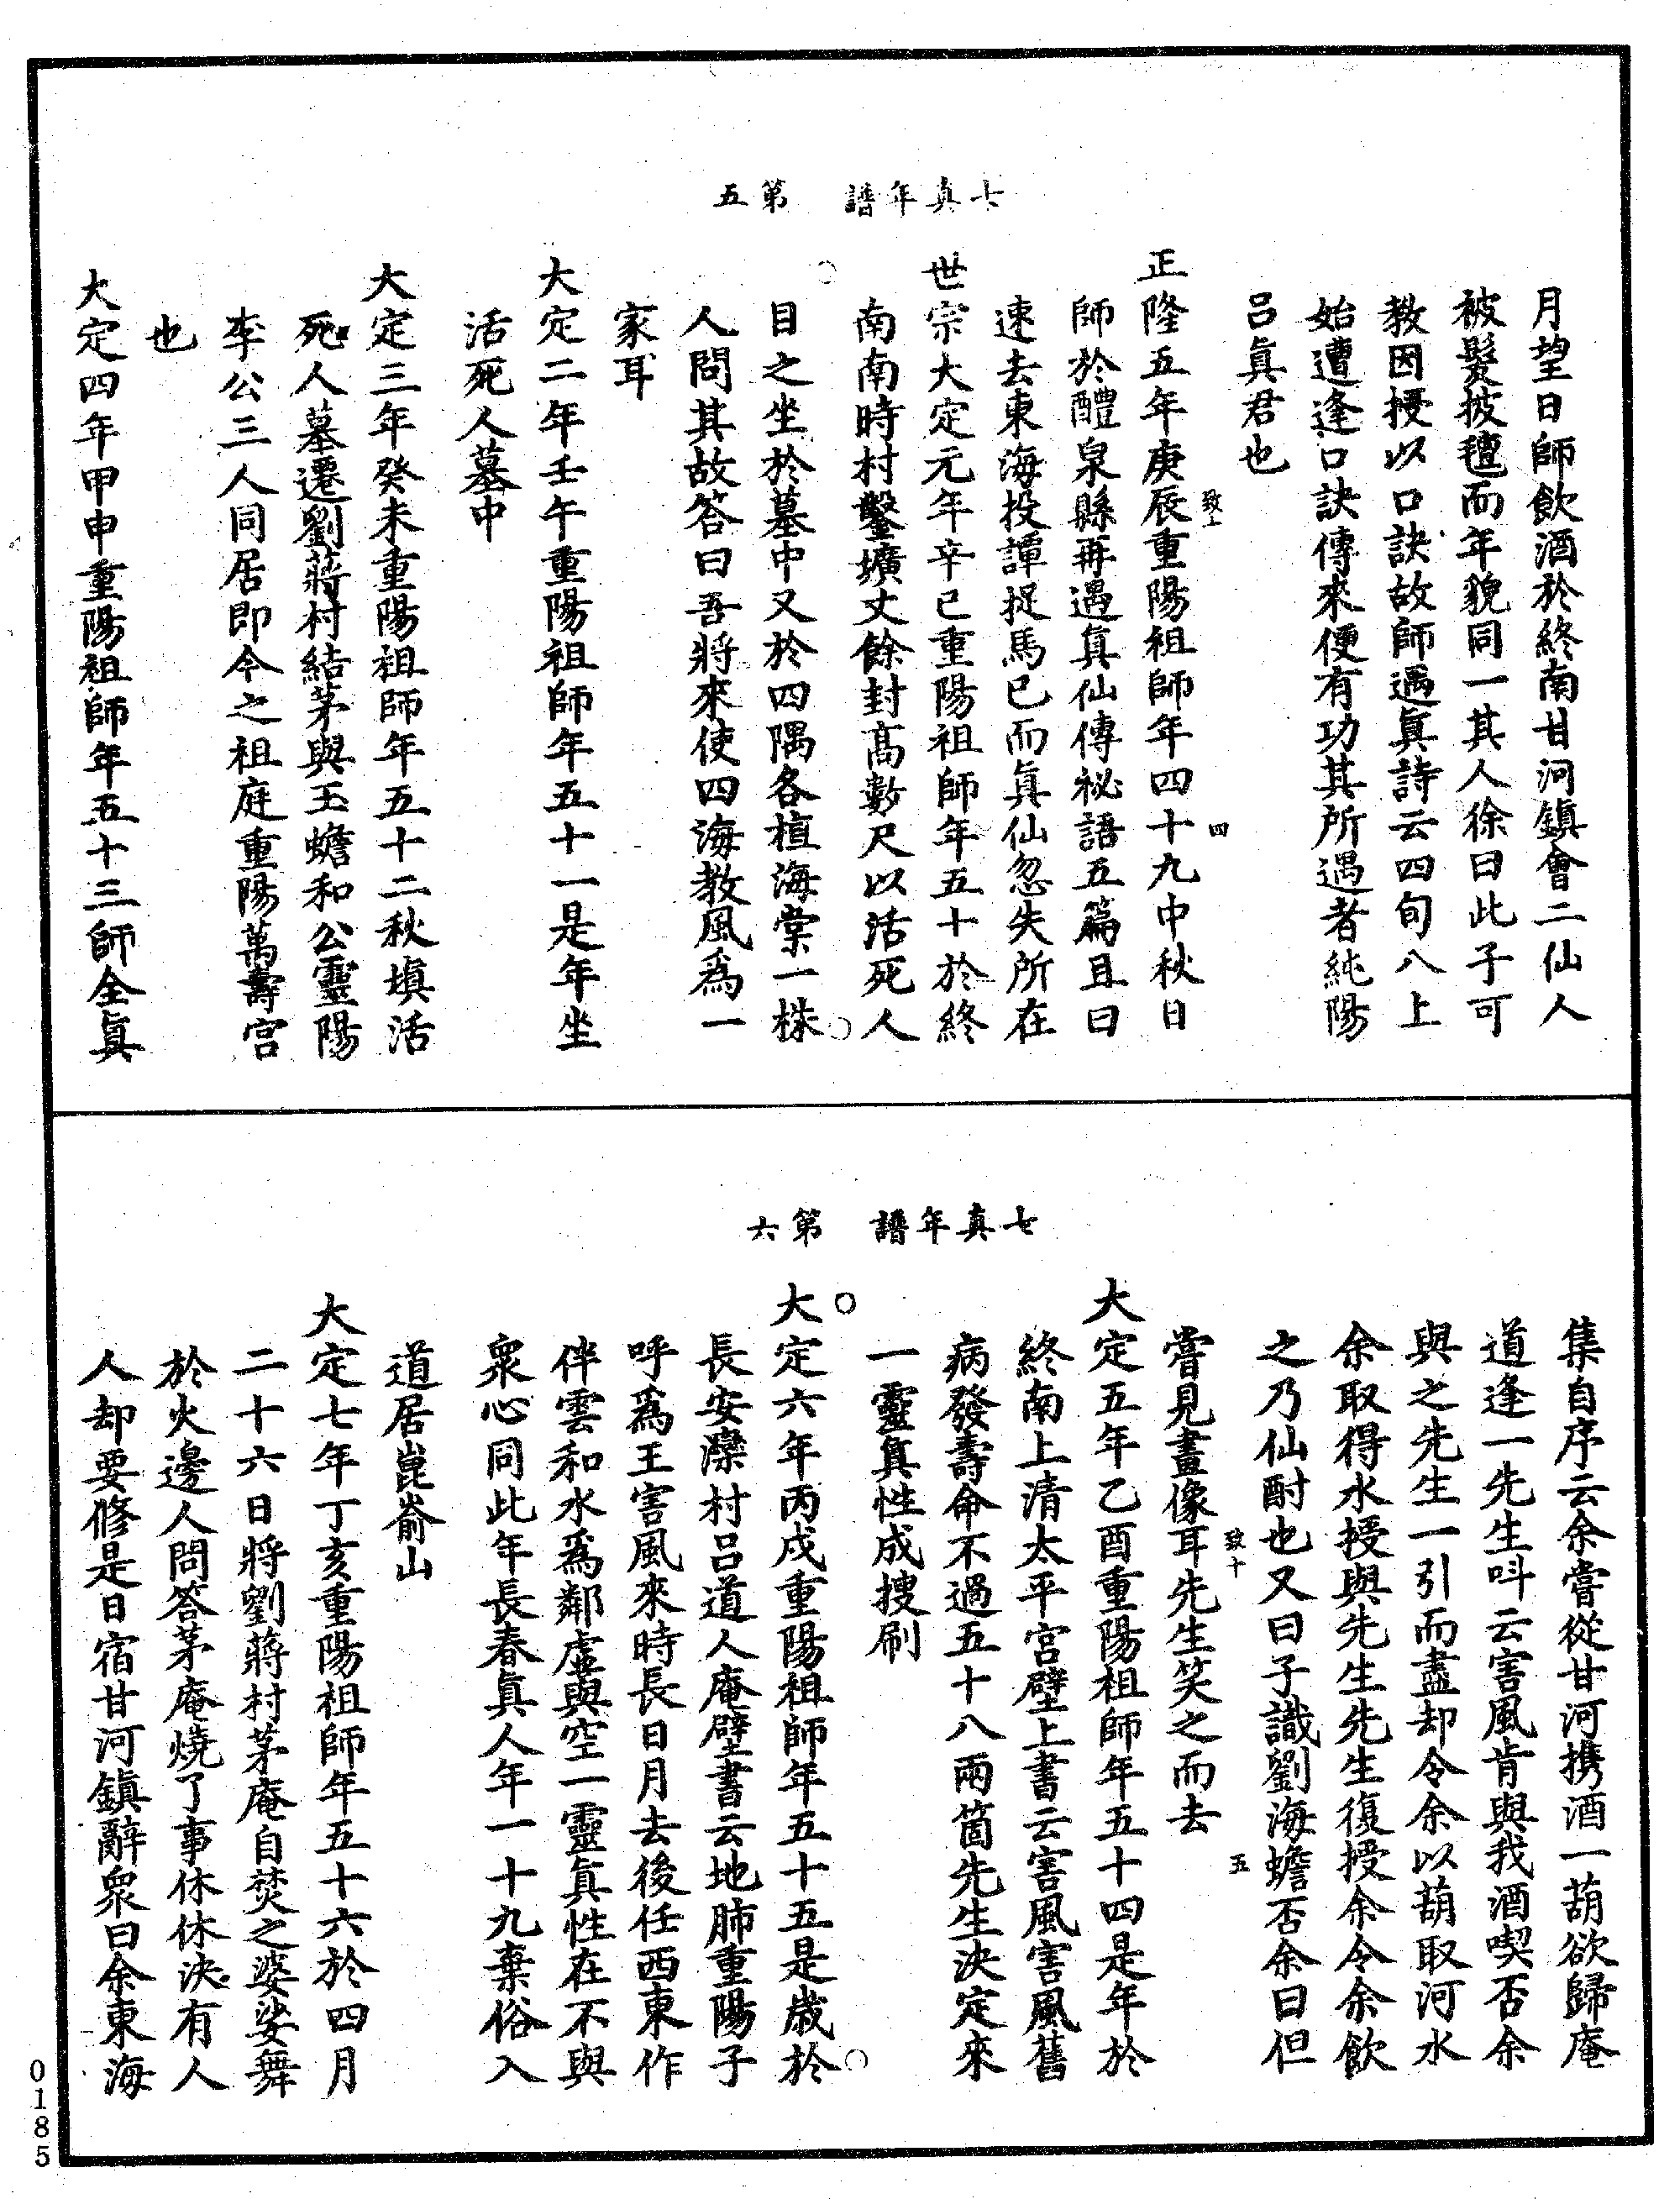 七真年譜　第五
月望日師飲酒於終南甘河鎮會二仙人
被髮披氊而年貌同一其人徐曰此子可
教因授以口訣故師遇真詩云四旬八上
始遭逢口訣傳來便有功其所遇者純陽
呂真君也
致十　四
正隆五年庚辰重陽祖師年四十九中秋日
師於醴泉縣再遇真仙傳祕語五篇且曰
速去東海投譚捉馬已而真仙忽失所在
世宗大定元年辛巳重陽祖師年五十於終
南南時村鑿壙丈餘封高數尺以活死人
目之坐於墓中又於四隅各植海棠一株
人問其故答曰吾將來使四海教風為一
家耳
大定二年壬午重陽祖師年五十一是年坐
活死人墓中
大定三年癸未重陽祖師年五十二秋填活
死人墓遷劉蔣村結茅與玉蟾和公靈陽
李公三人同居即今之祖庭重陽萬壽宮
也
大定四年甲申重陽祖師年五十三師全真
七真年譜　第六
集自序云余嘗從甘河携酒一葫欲歸庵
道逢一先生呌云害風肯與我酒喫否余
與之先生一引而盡却令余以葫取河水
余取得水授與先生先生復授余令余飲
之乃仙酎也又曰子識劉海蟾否余曰但
致十　五
嘗見畫像耳先生笑之而去
大定五年乙酉重陽祖師年五十四是年於
終南上清太平宮壁上書云害風害風舊
病發壽命不過五十八兩箇先生決定來
一靈真性成搜刷
大定六年丙戌重陽祖師年五十五是歲於
長安灤村呂道人庵壁書云地肺重陽子
呼為王害風來時長日月去後任西東作
伴雲和水為鄰虛與空一靈真性在不與
眾心同此年長春真人年一十九棄俗入
道居崑崳山
大定七年丁亥重陽祖師年五十六於四月
二十六日將劉蔣村茅庵自焚之婆娑舞
於火邊人問答茅庵燒了事休休決有人
人却要修是日宿甘河鎮辭眾曰余東海
0185